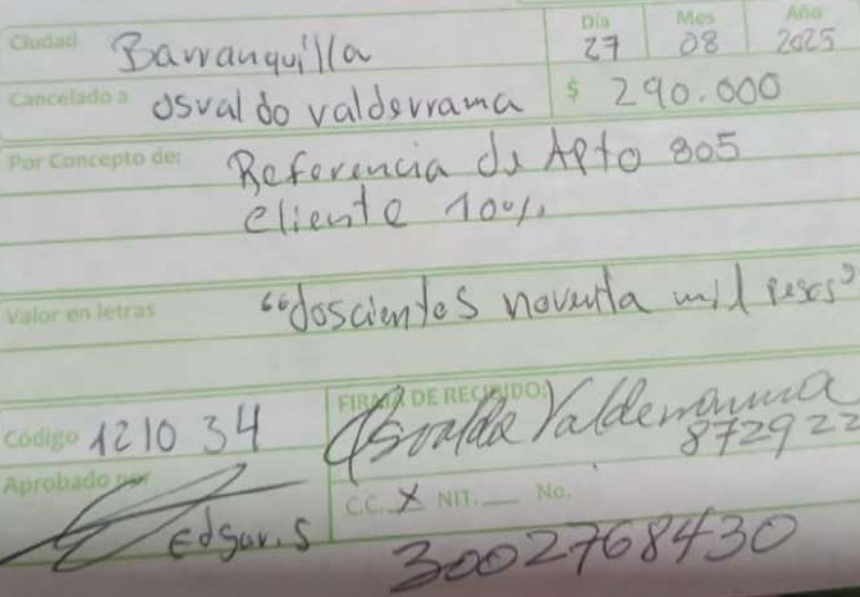 Día Mes Año
Ciudad Barranquilla 27 08 2025
Cancelado a Osvaldo valderrama $ 290.000
Por Concepto de: Referencia de Apto 805
cliente 100%
Valor en letras "doscientos noventa mil pesos"
Código 121034
FIRMA DE RECIBIDO: Osvaldo Valderrama
872922
Aprobado por Edgar.S
C.C. X NIT. No.
3002768430